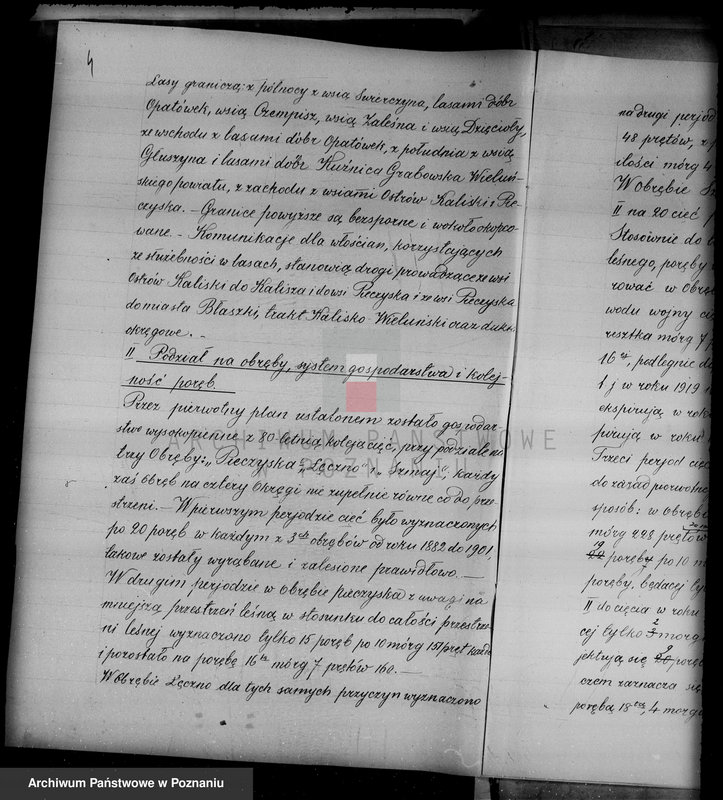 4
Lasy graniczą: z północy z wsią Świerczyna, lasami dóbr
Opatówek, wsią Czempisz, wsią Zaleśna i wsią Dzięcioły,
ze wschodu z lasami dóbr Opatówek, z południa z wsią
Głuszyna i lasami dóbr Kuźnica Grabowska Wieluń-
skiego powiatu, z zachodu z wsiami Ostrów Kaliski i Pie-
czyska. - Granice powyższe są bezsporne i wokoło okopco-
wane. - Komunikacje dla włościan, korzystających
ze służebności w lasach, stanowią drogi prowadzące ze wsi
Ostrów Kaliski do Kalisza i do wsi Pieczyska i ze wsi Pieczyska
do miasta Błaszki, trakt Kalisko-Wieluński oraz dukt
okręgowe. -
II Podział na obręby, system gospodarstwa i kolej-
ność poręb.
Przez pierwotny plan ustalonem zostało gospodar-
stwo wysokopienne z 80 letnią koleją cięć, przy podziale na
trzy Obręby: "Pieczyska" "Łęczno" i "Szmaj" każdy
zaś obręb na cztery Okręgi nie zupełnie równe co do prze-
strzeni. - W pierwszym perjodzie cięć było wyznaczonych
po 20 poręb w każdym z 3ch obrębów od roku 1882 do 1901,
takowe zostały wyrąbane i zalesione prawidłowo. -
W drugim perjodzie w Obrębie Pieczyska z uwagi na
mniejszą przestrzeń leśną w stosunku do całości przestrze-
ni leśnej wyznaczono tylko 15 poręb po 10 mórg 151 pręt. każda
i pozostało na porębę 16tą mórg 7 prętów 160. -
W Obrębie Łęczno dla tych samych przyczyn wyznaczono
na drugi perjod
48 prętów, z
ilości mórg 4
W Obrębie
II na 20 cięć
Stosownie do
leśnego, poręby
rować w Obręb
wodu wojny
resztka mórg 7
16ta, podlegnie
1 j w roku 1919
ekspirują w roku
pirują w roku
Trzeci perjod cięć
do zasad pierwotne
sposób: w Obrębie
mórg 228 prętów
19
poręby po 10 m
poręby, będącej
II do cięcia w roku
cej tylko 2 morg
jektują się poręb
czem zaznacza się
porębą 18tą, 4 morgi
ARCHIWUM PAŃSTWOWE
W POZNANIU
Archiwum Państwowe w Poznaniu